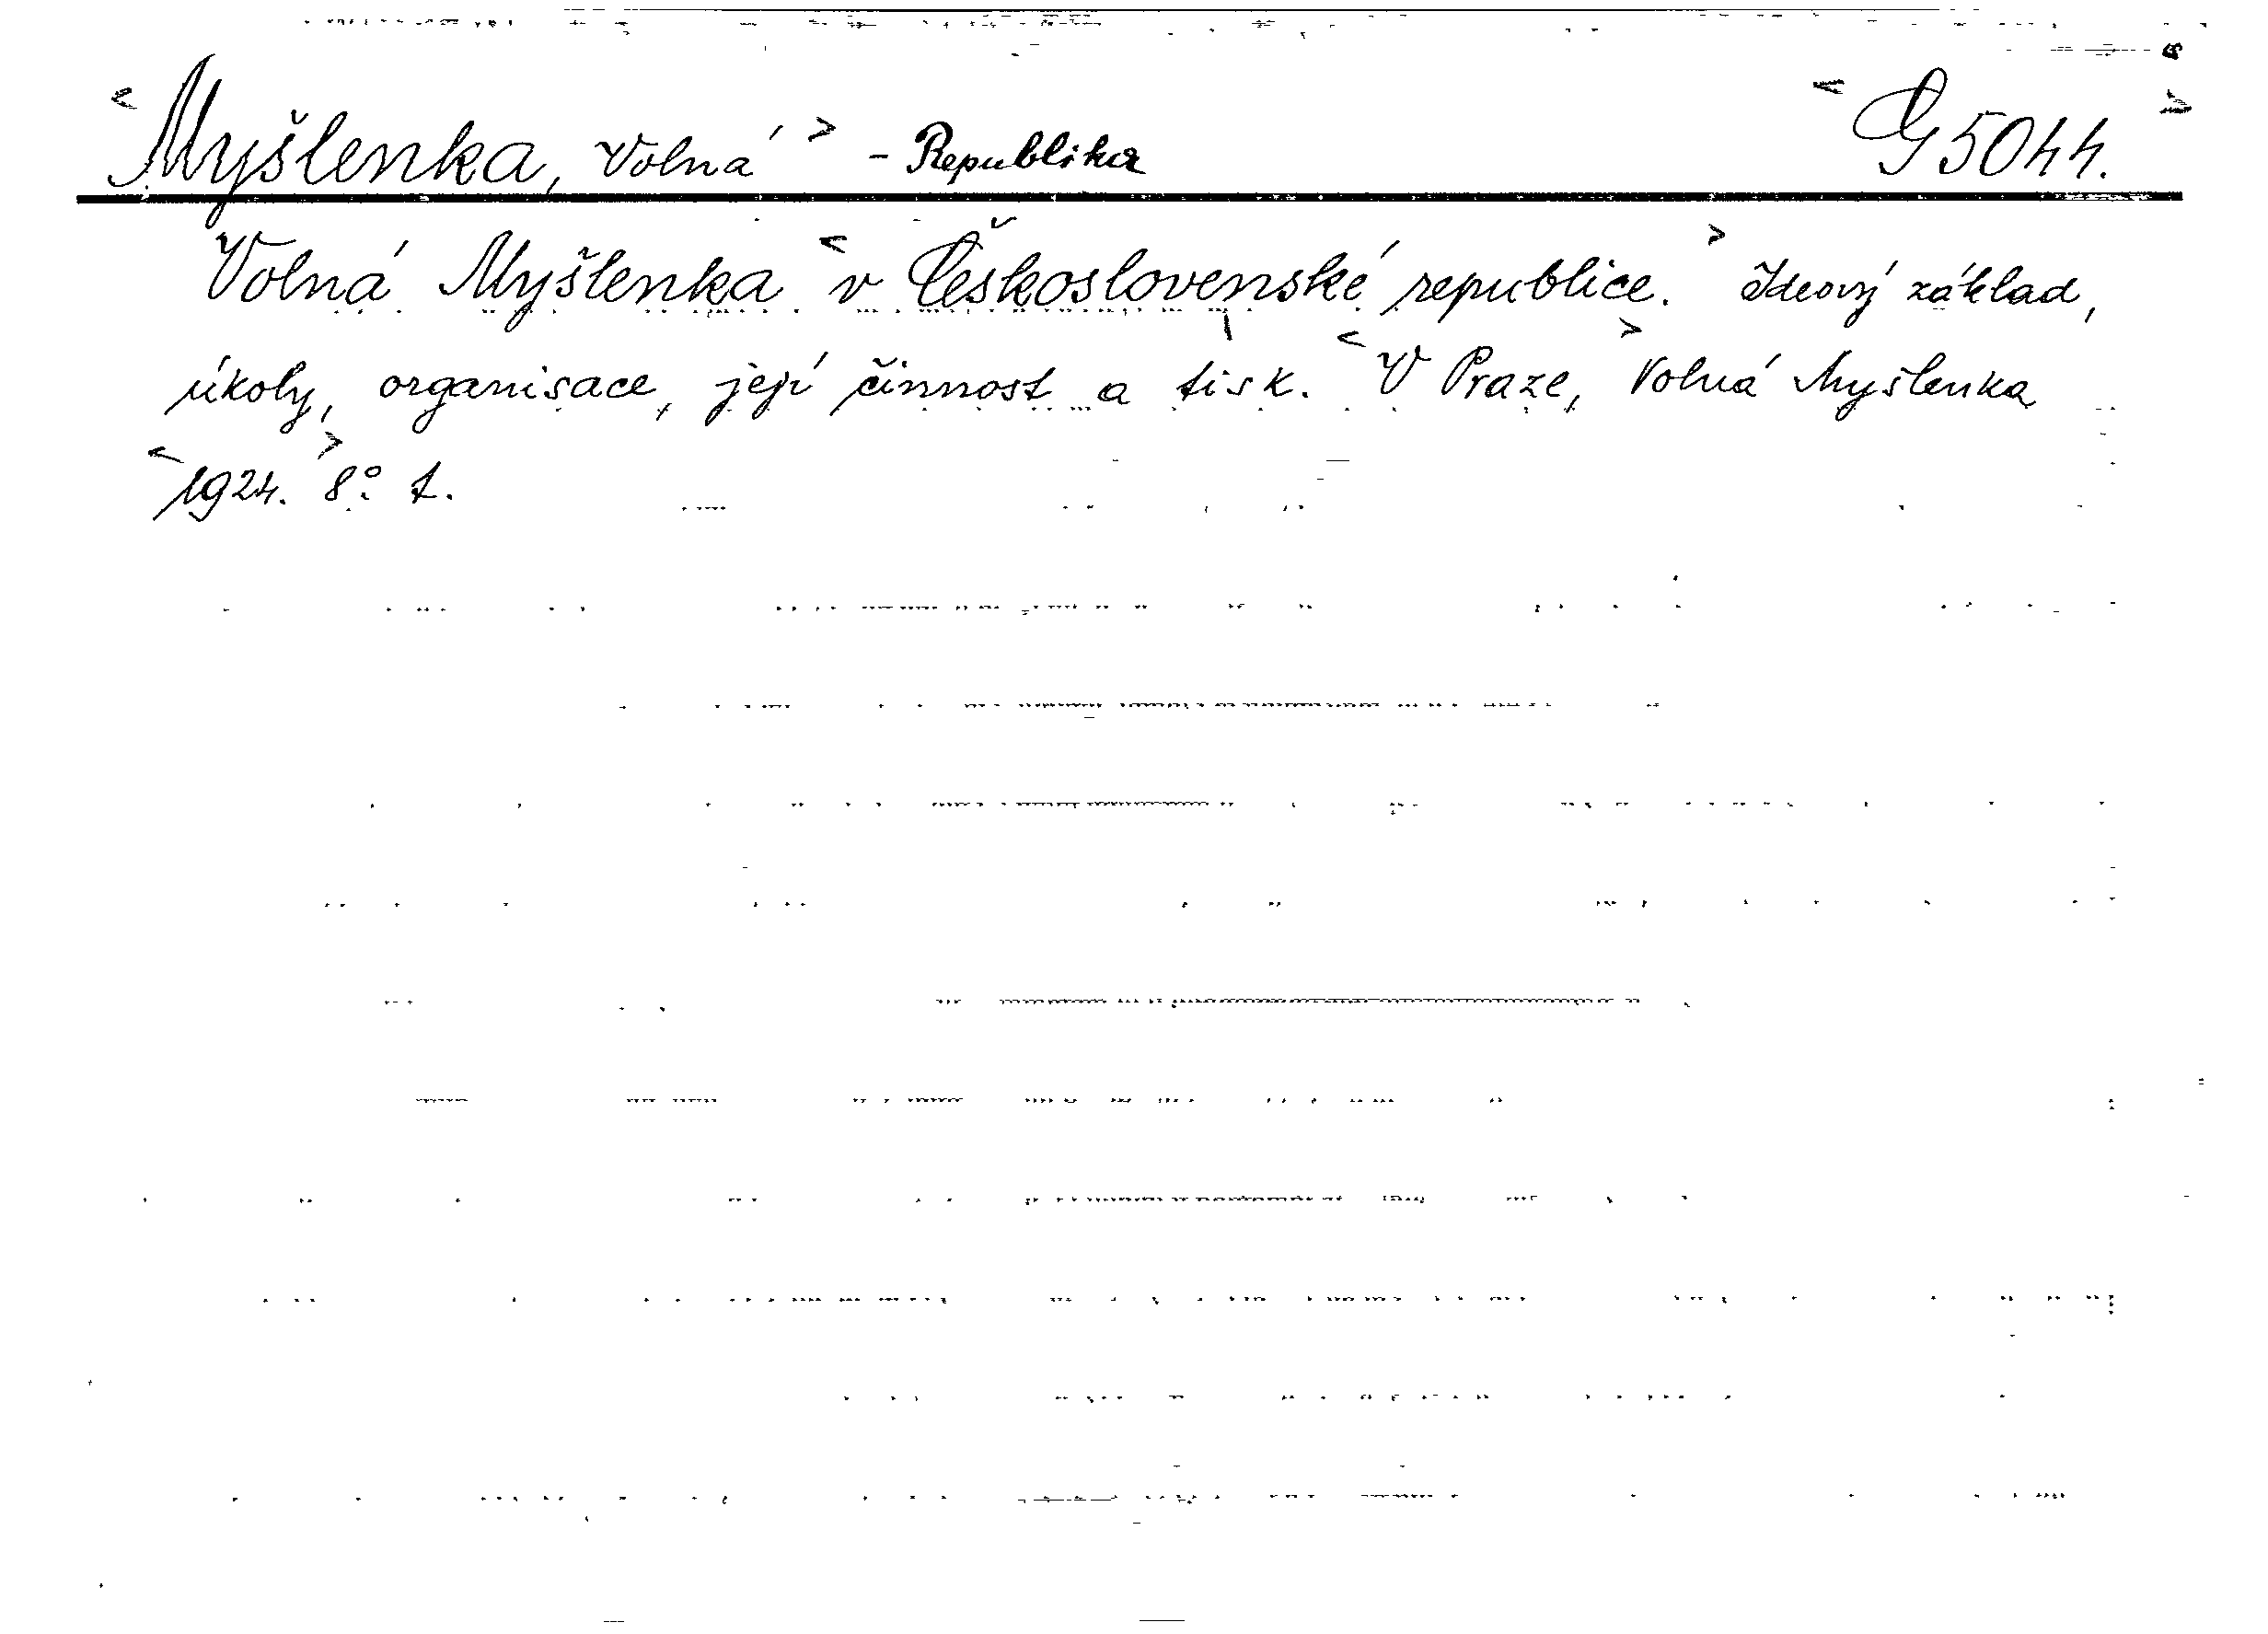 <Myšlenka, Volná> - Republika <G 5044.>
Volná Myšlenka <v Československé republice.> Ideový základ,
úkoly, organisace, její činnost a tisk. <V Praze,> Volná Myšlenka
<1924.> 8°. t.